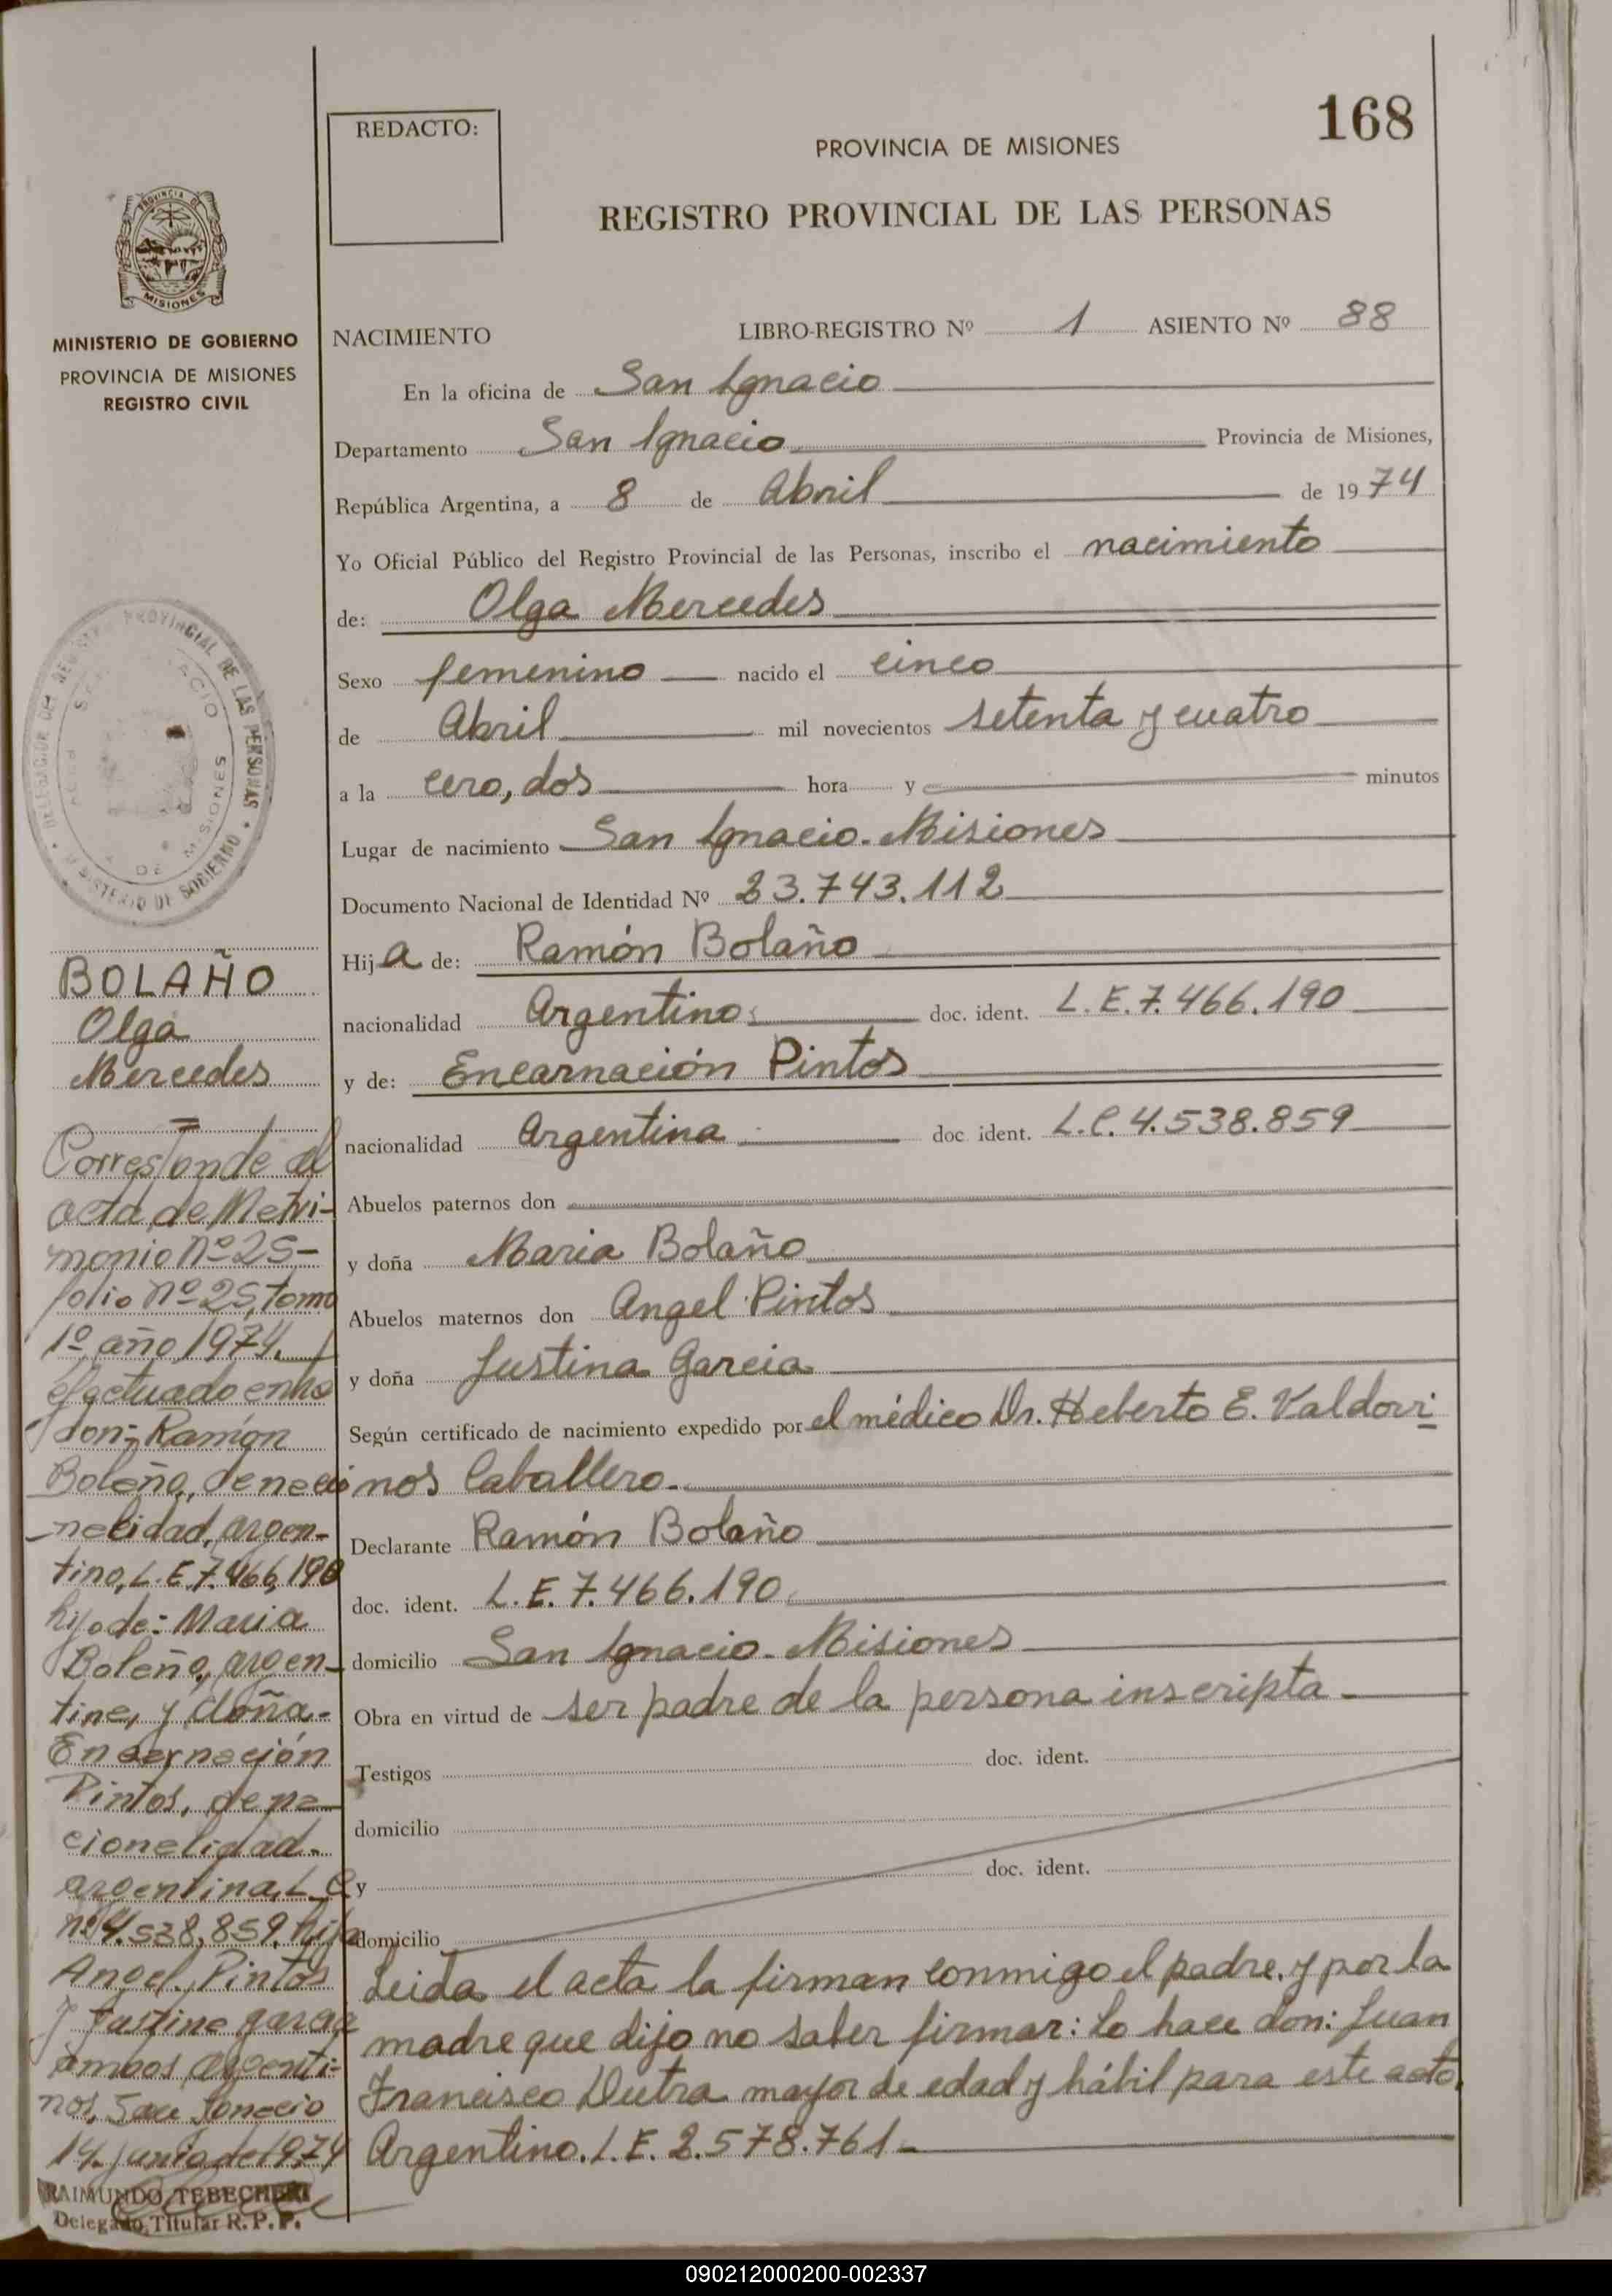 168
REDACTO:
PROVINCIA DE MISIONES
REGISTRO PROVINCIAL DE LAS PERSONAS
PROVINCIA DE
MISIONES
MINISTERIO DE GOBIERNO
PROVINCIA DE MISIONES
REGISTRO CIVIL
NACIMIENTO LIBRO-REGISTRO Nº 1 ASIENTO Nº 88
En la oficina de San Ignacio
Departamento San Ignacio Provincia de Misiones,
República Argentina, a 8 de Abril de 1974
Yo Oficial Público del Registro Provincial de las Personas, inscribo el nacimiento
de: Olga Mercedes
Sexo femenino nacido el cinco
de Abril mil novecientos setenta y cuatro
a la cero, dos hora y minutos
Lugar de nacimiento San Ignacio. Misiones
Documento Nacional de Identidad Nº 23.743.112
Hija de: Ramón Bolaño
nacionalidad Argentino doc. ident. L.E.7.466.190
y de: Encarnación Pintos
nacionalidad Argentina doc ident. L.C.4.538.859
Abuelos paternos don
y doña Maria Bolaño
Abuelos maternos don Angel Pintos
y doña Justina Garcia
Según certificado de nacimiento expedido por el médico Dr. Heberto E. Valdovi
nos Caballero.
Declarante Ramón Bolaño
doc. ident. L.E.7.466.190
domicilio San Ignacio. Misiones
Obra en virtud de ser padre de la persona inscripta
Testigos doc. ident.
domicilio
y doc. ident.
domicilio
Leida el acta la firman conmigo el padre, y por la
madre que dijo no saber firmar: lo hace don: Juan
Francisco Dutra mayor de edad y hábil para este acto,
Argentino. L.E. 2.578.761
PROVINCIAL DE LAS PERSONAS
MISIONES
DE
MINISTERIO DE GOBIERNO
BOLAÑO
Olga
Mercedes
Corresponde al
acta de Metri-
monio Nº 25-
folio Nº 25, tomo
1º año 1974.
efectuado entre
don: Ramón
Bolaño, de nacio
nalidad, argen-
tino, L.E 7.466,190
hijo de: Maria
Bolaño, argen-
tina, y doña.
Encarnación
Pintos, de na
cionalidad.
argentina, L.C
nº 4.538,859, hija
Angel Pintos
y Justina garcia
ambos argenti-
nos, San Ignacio
14 junio de 1974
RAIMUNDO TEBECHERI
Delegado Titular R.P.P.
090212000200-002337